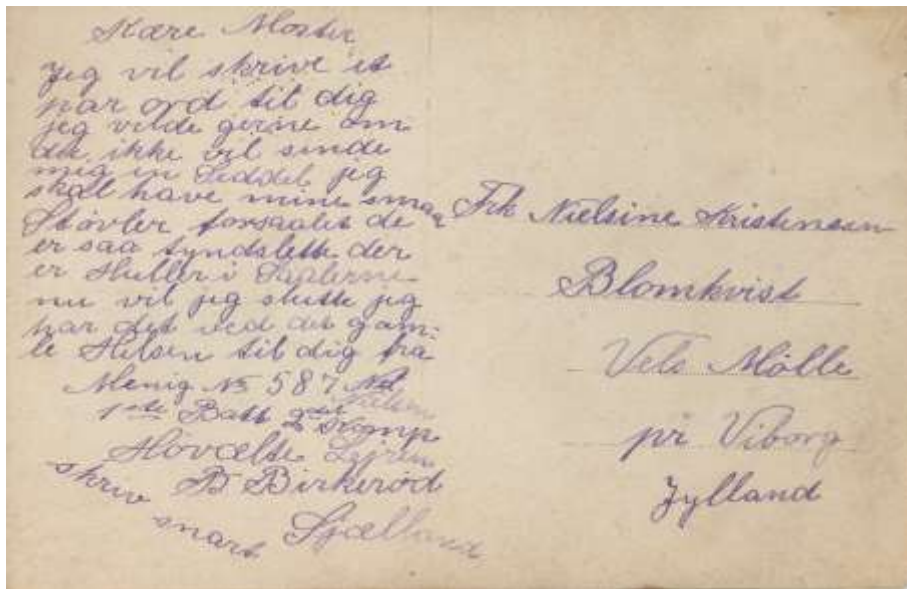 Kære Moster
Jeg vil skrive et
par ord til dig
jeg vilde gerne om
du ikke vil sende
mig en Seddel jeg
skal have mine smaa
Støvler forsaalet de
er saa tyndslette der
er Huller i Saalerne
nu vil jeg slutte jeg
har det ved det gam-
le Hilsen til dig fra
Menig No 587
1ste Batt 2det Komp
Høvelte Lejren
B Birkerød
Sjælland
skriv snart
Frk Nielsine Kristensen
Blomkvist
Vels Mölle
pr Viborg
Jylland